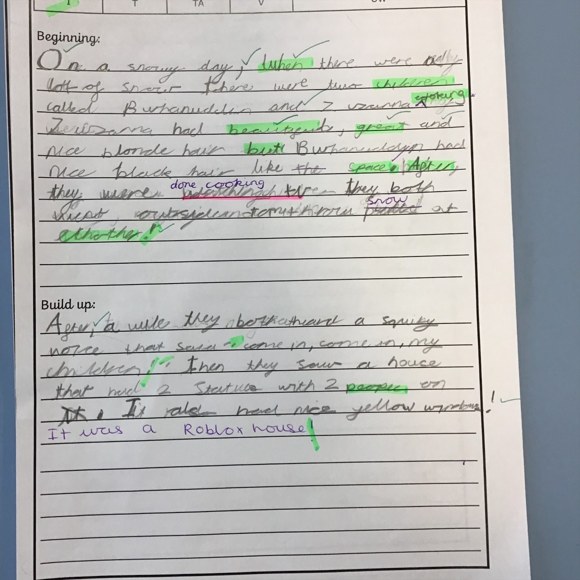 T TA V
Beginning:
On a snowy day, when there were really
lott of snow there were two children
called Burhanuddin and Zuzanna
cooking.
Zuzanna had beautifuls, great and
nice blonde hair but Burhanuddin had
nice black hair like the space. After
they were done cooking they both
went outside and snow at
eachother!
Build up:
After a wile they both heard a squiky
noice that said come in, come in, my
children! Then they saw a house
that had 2 Statues with 2 people on
It. It had nice yellow !
It was a Roblox house!